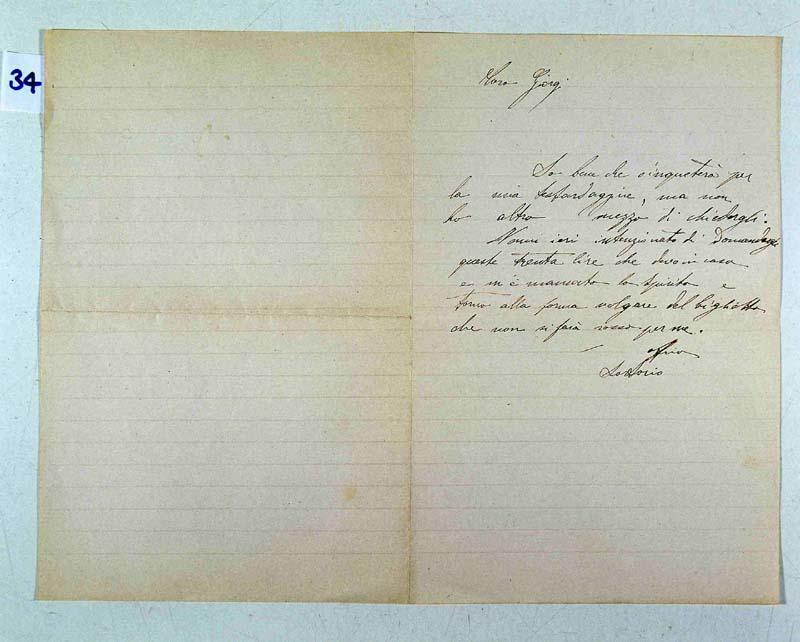 34
Caro Giorgi
So ben che s'inquieterà per
la mia testardaggine, ma non
ho altro mezzo di chiedergli.
Venni ieri intenzionato di
queste trenta lire che devo in casa
e m'è mancato lo spirito e
torno alla forma volgare del biglietto
che non si farà rosso per me.